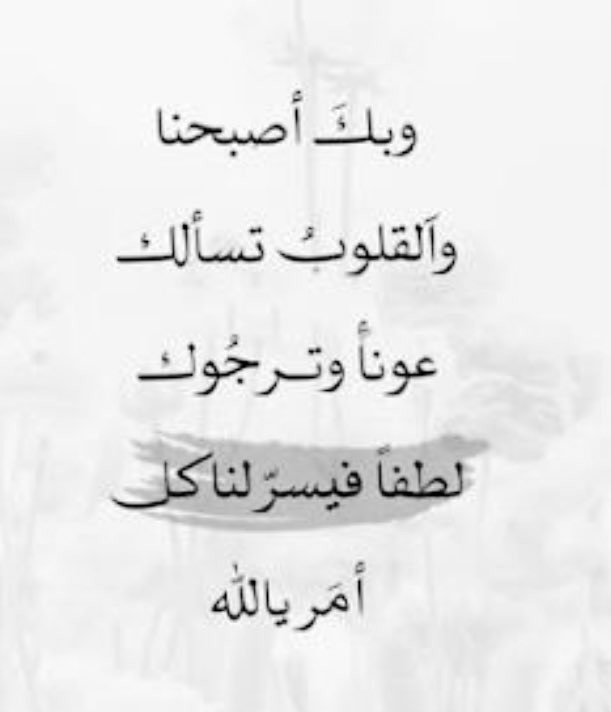 وبكَ أصبحنا
واَلقلوبُ تسألك
عوناً وترجُوك
لطفاً فيسرّ لنا كل
أمَر يالله